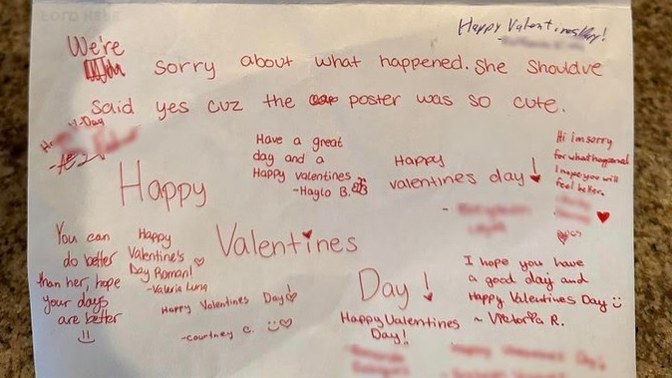 Happy Valentines Day!
We're
sorry about what happened. She shouldve
said yes cuz the poster was so cute.
V-Day
Have a great
day and a
Happy valentines
-Haylo B.
Happy
valentines day!
Hi im sorry
for what happened
I hope you will
feel better.
Happy
Valentines
Day!
You can
do better
than her, hope
your days
are better
Happy
Valentine's
Day Roman!
-Valeria Luna
Happy Valentines Day!
-Courtney C.
Happy Valentines
Day!
I hope you have
a good day and
Happy Valentines Day
~ Victoria R.